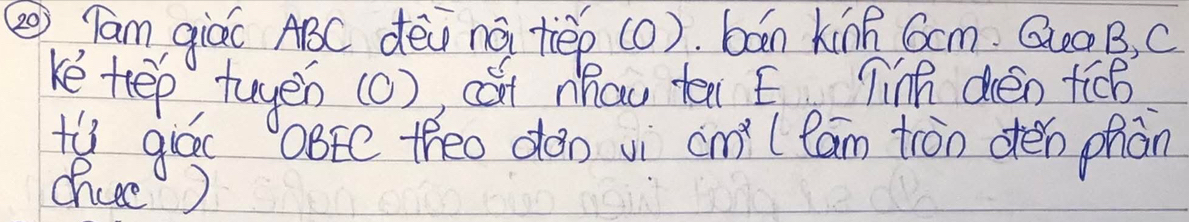 20) Tam giác ABC đều nội tiếp (O). bán kính 6cm. Qua B, C
kẻ tiếp tuyến (O), cắt nhau tại E. Tính diện tích
tứ giác OBEC theo đơn vị cm² (làm tròn đến phần
chục)